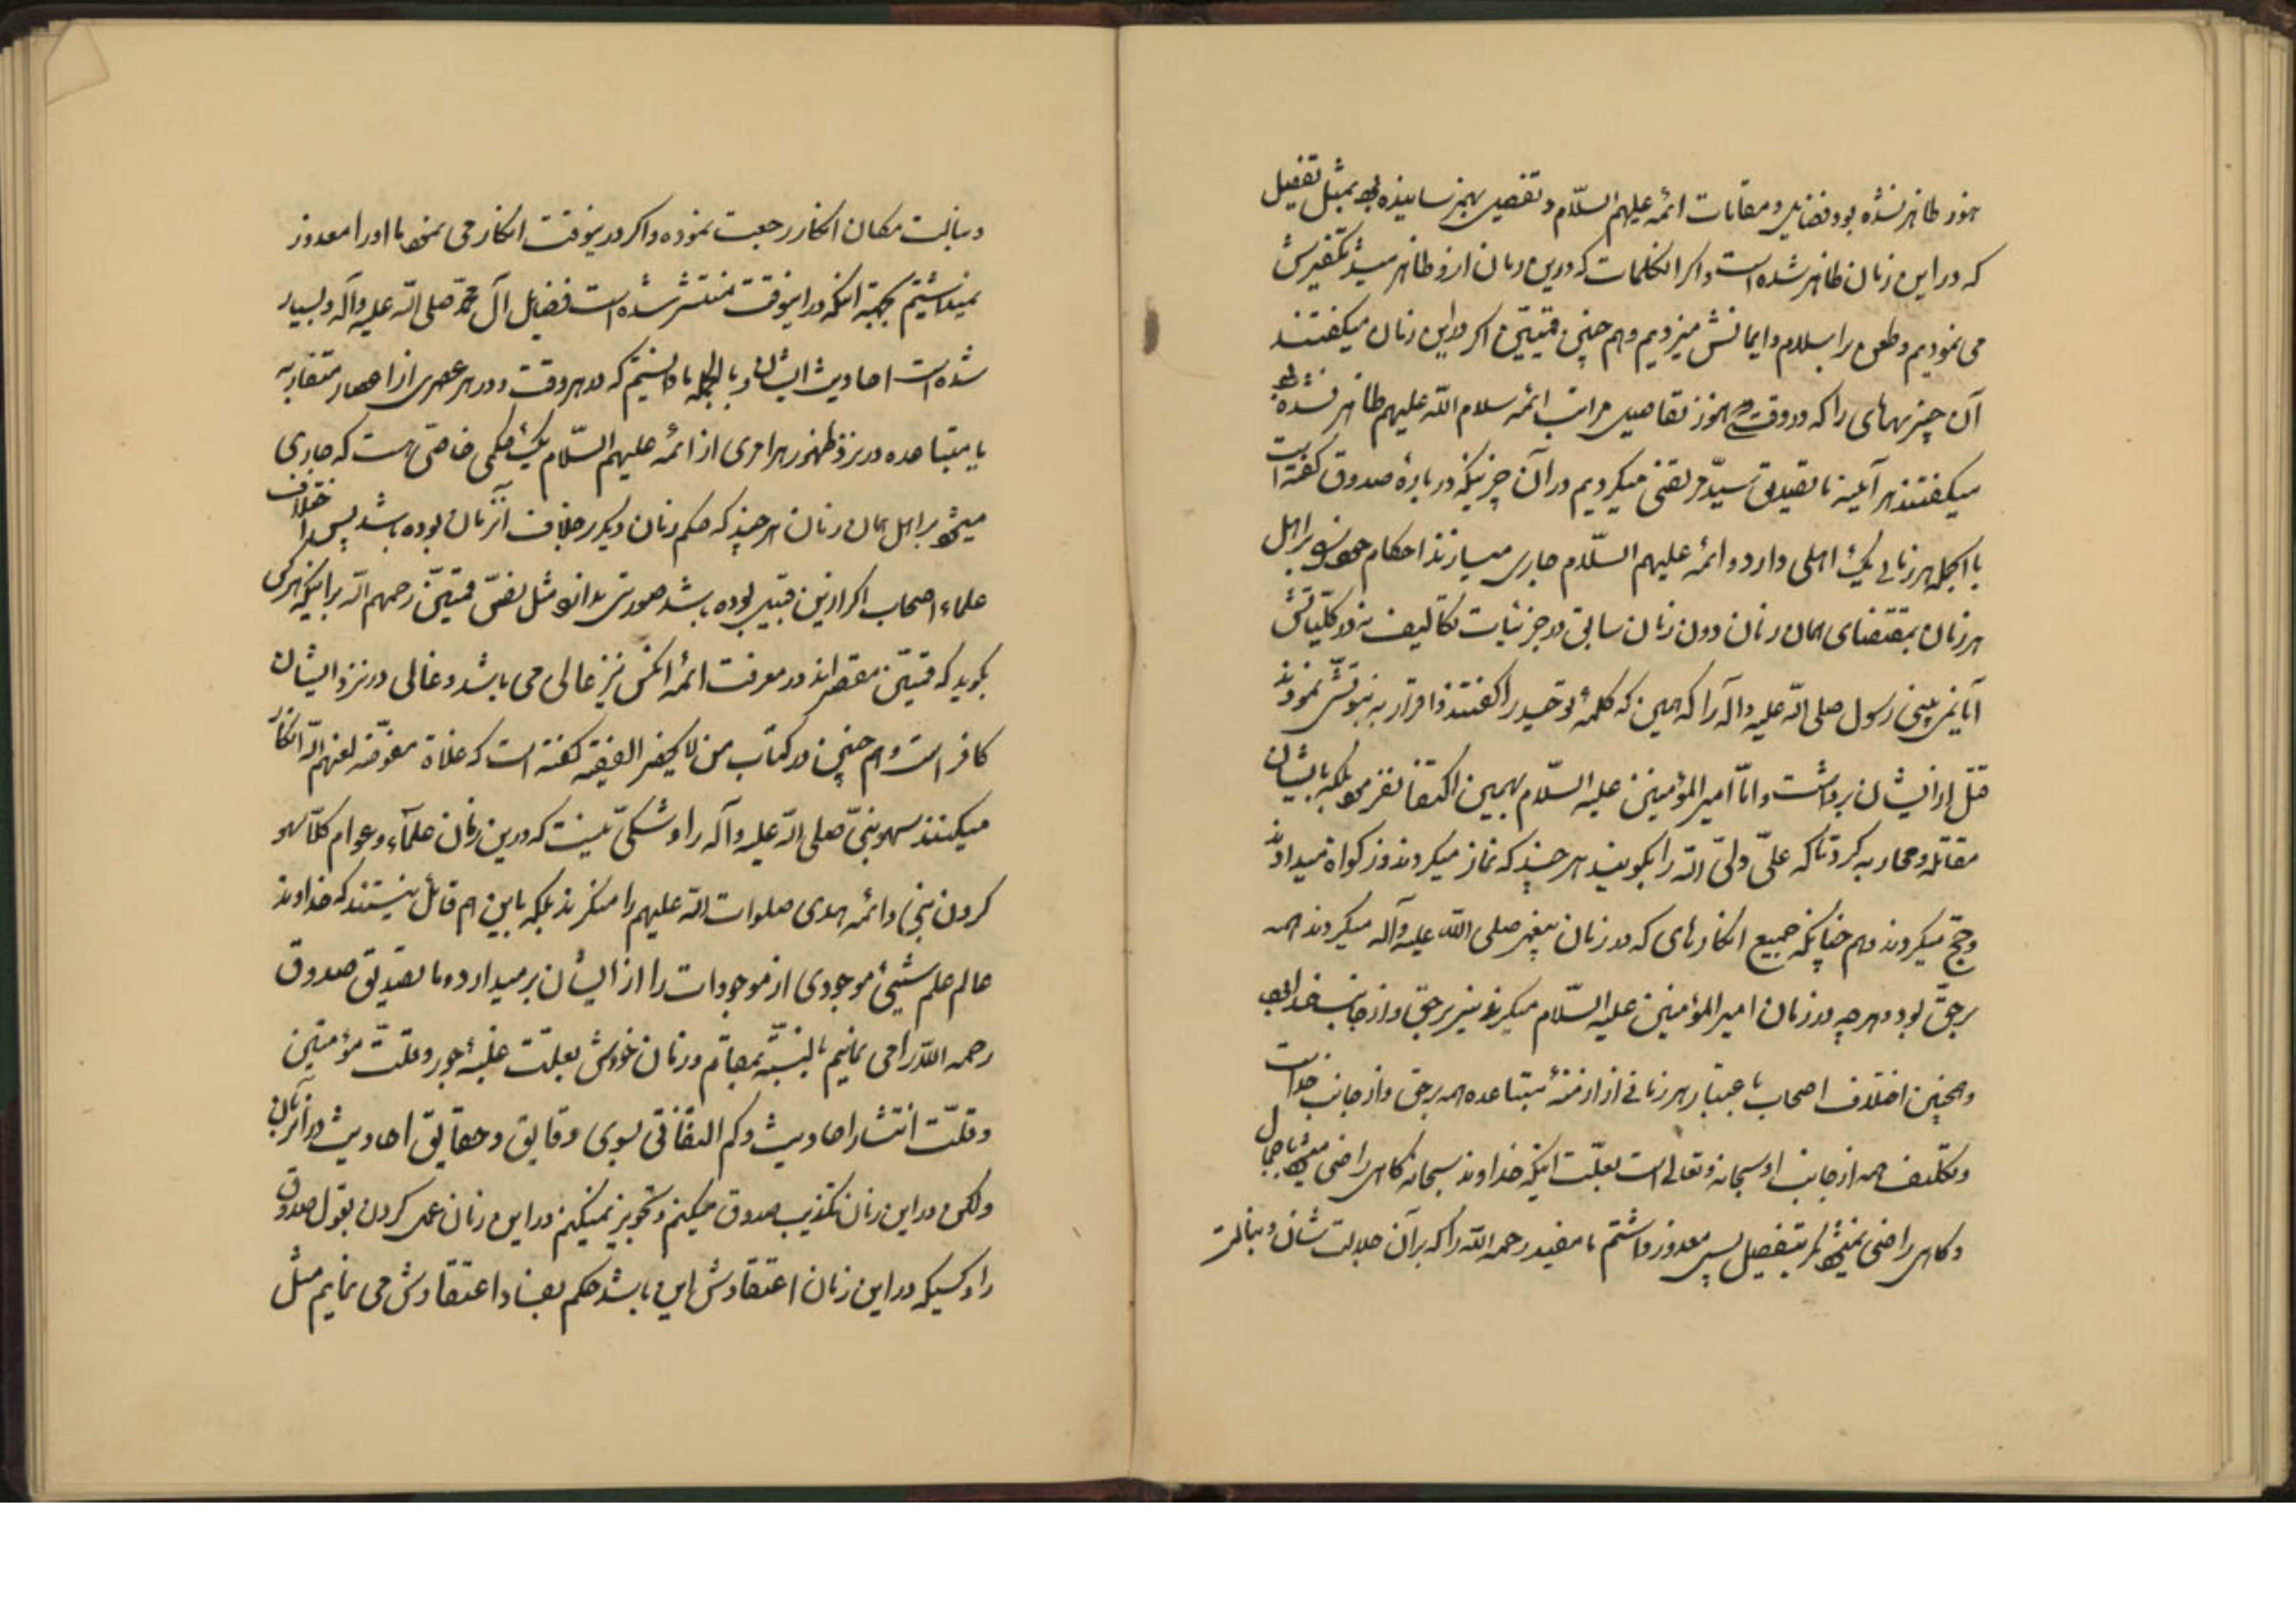 هنوز ظاهر نشده بود فضایل و مقامات ائمه علیهم السّلام و تفصیل بهم نرسانیده بود بمثل تفصیل
که در این زمان ظاهر شده است و اگر انکلمات که درین زمان ازو ظاهر میشد تکفیرش
می نمودیم و طعن بر اسلام و ایمانش میزدیم و هم چنین قمیّین اگر در این زمان میگفتند
آن چیزیهای را که در وقت هنوز تفاصیل مراتب ائمه سلام اللّه علیهم ظاهر نشده بود
میگفتند هر آینه ما تصدیق سیّد مرتضی میکردیم در آن چیزیکه در بارهٔ صدوق گفته است
با الجمله هر زمانی یک اهلی دارد و ائمه علیهم السّلام جاری میسازند احکام خود را بر اهل
هر زمان بمقتضای همان زمان دون زمان سابق در جزئیات تکالیف نه در کلّیاتش
آیا نمی بینی رسول صلی اللّه علیه و اله را که همین که کلمهٔ توحید را گفتند و اقرار به نبوّتش نمودند
قتل از ایشان برداشت و امّا امیر المؤمنین علیه السّلام بهمین اکتفا نفرمود بلکه با ایشان
مقاتله و محاربه کرد تا که علیّ ولیّ اللّه را بگویند هر چند که نماز میکردند و زکواة میدادند
و حجّ میکردند و هم چنانکه جمیع انکارهای که در زمان پیغمبر صلی اللّه علیه و آله میکردند همه
بر حقّ بود و هر چه در زمان امیر المؤمنین علیه السّلام میکردند نیز بر حق و از جانب خدا بود
و همچنین اختلاف اصحاب باعتبار هر زمانی از ازمنهٔ متباعده همه بر حق و از جانب خداست
و تکلیف همه از جانب او سبحانه و تعالی است بعلّت اینکه خداوند سبحانه گاهی راضی میشود باجمال
و گاهی راضی نمیشود مگر بتفصیل پس معذور داشتم ما مفید رحمه اللّه را که بر آن جلالت شان و نبالت
و نبالت مکان انکار رجعت نموده و اگر در ینوقت انکار می نمود ما او را معذور
نمیداشتیم بجهة انکه در اینوقت منتشر شده است فضایل آل محمّد صلی اللّه علیه و آله و بسیار
شده است احادیث ایشان و بالجمله ما دانستیم که در هر وقت و در هر عصری از اعصار متقاربه
یا متباعده در نزد ظهور هر امری از ائمه علیهم السّلام یک حکمی خاصّی هست که جاری
میشود بر اهل همان زمان هر چند که حکم زمان دیگر بر خلاف آنزمان بوده باشد پس اختلاف
علماء اصحاب اگر ازین قبیل بوده باشد صورتی بدانند مثل نصّ قمیّین رحمهم اللّه بر اینکه هر کس
بگوید که قمیّین مقصّراند در معرفت ائمه انکس نیز غالی می باشد و غالی در نزد ایشان
کافر است و هم چنین در کتاب من لا یحضر الفقیه گفته است که غلاة مفوّضه لعنهم اللّه انکار
میکنند سهو نبیّ صلی اللّه علیه و آله را و شکّی نیست که درین زمان علمآء و عوام کلّا سهو
کردن نبی و ائمه هدی صلوات اللّه علیهم را منکرند بلکه باین هم قائل نیستند که خداوند
عالم علم شیئ موجودی از موجودات را از ایشان بر میدارد و ما تصدیق صدوق
رحمه اللّه را می نمائیم بالنّسبة بمقام و زمان خودش بعلّت غلبهٔ جور و قلّت مؤمنین
و قلّت انتشار احادیث و کم التفاتی بسوی دقایق و حقایق احادیث در آنزمان
ولکن در این زمان تکذیب صدوق میکنیم و تجویز نمیکنیم در این زمان عمل کردن بقول صدوق
را و کسیکه در این زمان اعتقادش این باشد حکم بفساد اعتقادش می نمایم مثل